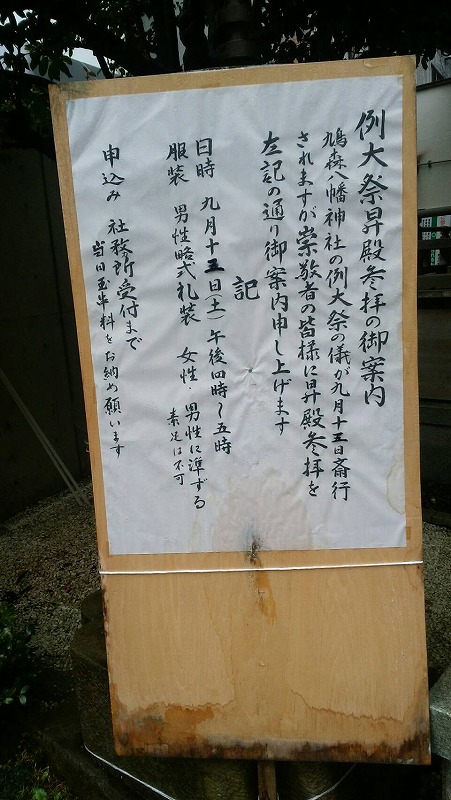 例大祭昇殿参拝の御案内
鳩森八幡神社の例大祭の儀が九月十五日斎行
されますが崇敬者の皆様に昇殿参拝を
左記の通り御案内申し上げます
記
日時 九月十五日(土) 午後四時〜五時
服装 男性略式礼装 女性 男性に準ずる
素足は不可
申込み 社務所受付まで
当日玉串料をお納め願います